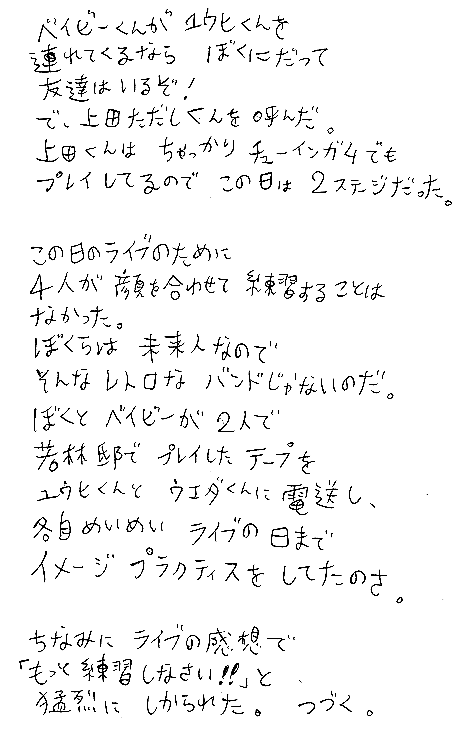 ベイビーくんが ユウヒくんを
連れてくるなら ぼくにだって
友達はいるぞ!
で、上田ただしくんを呼んだ。
上田くんは ちゃっかり チューインガ4でも
プレイしてるので この日は 2ステージだった。
この日のライブのために
4人が顔を合わせて 練習することは
なかった。
ぼくらは 未来人なので
そんな レトロな バンドじゃないのだ。
ぼくと ベイビーが 2人で
若林邸で プレイした テープを
ユウヒくんと ウエダくんに 電送し、
各自めいめい ライブの日まで
イメージ プラクティスを してたのさ。
ちなみに ライブの感想で
「もっと練習しなさい!!」と、
猛烈に しかられた。 つづく。